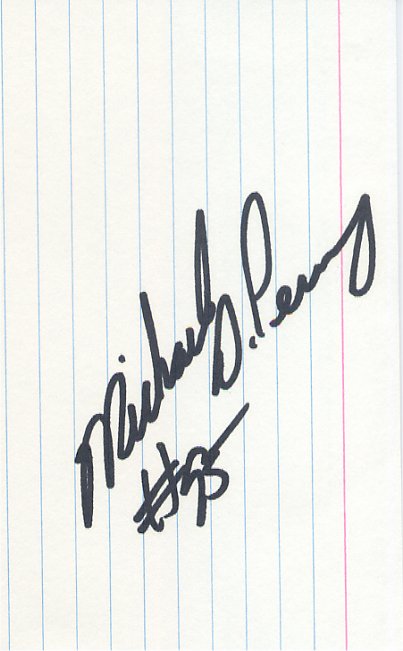 Michael D. Perry
#95